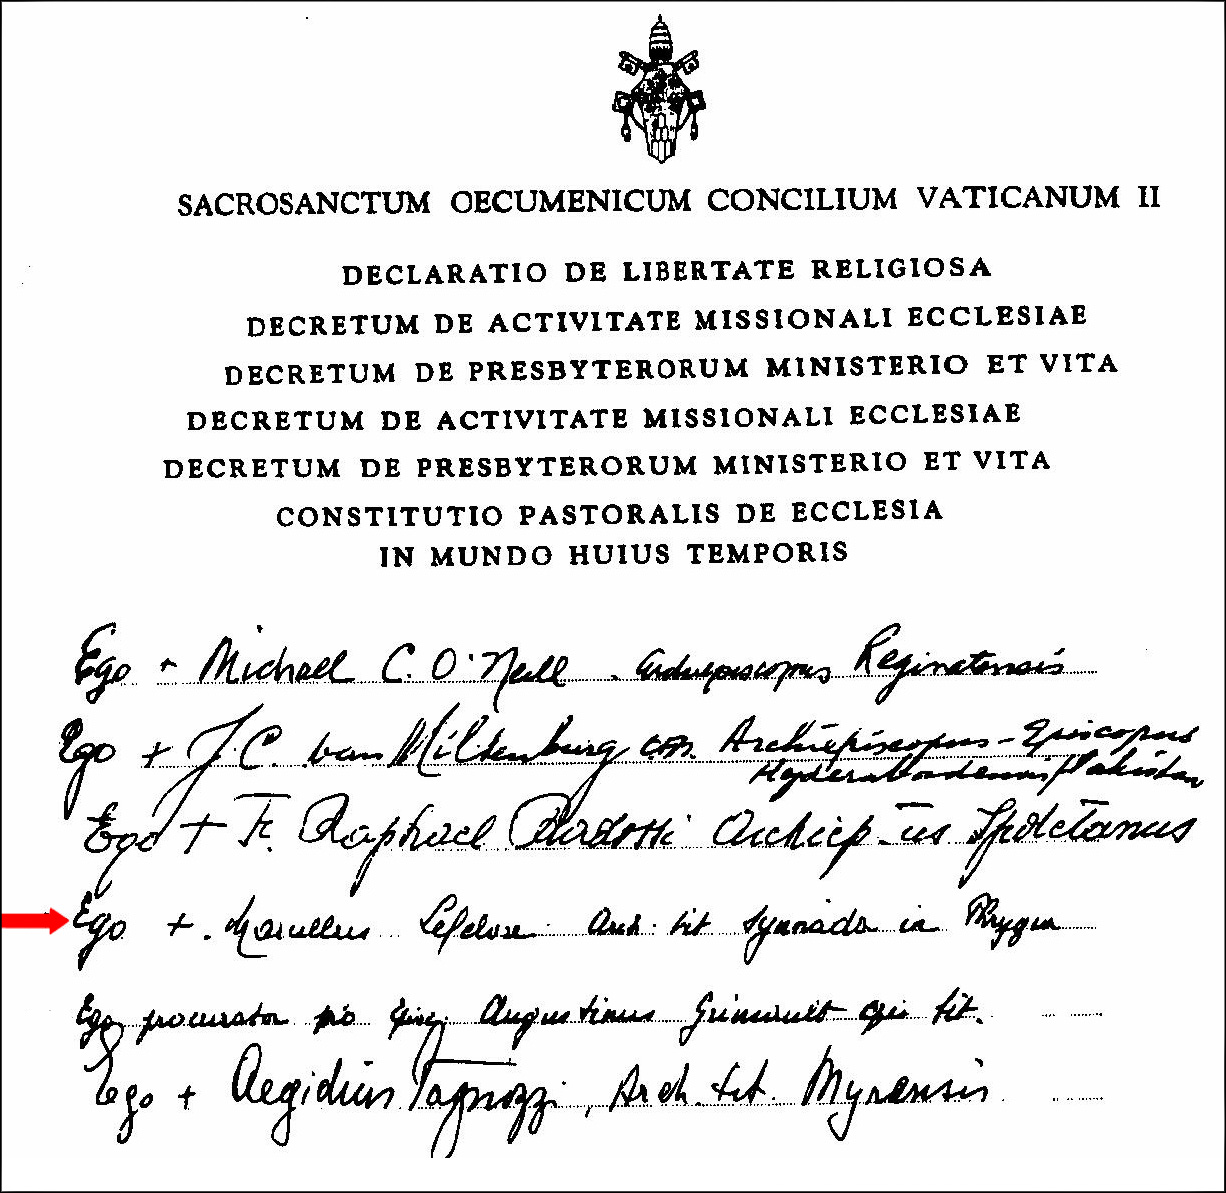 SACROSANCTUM OECUMENICUM CONCILIUM VATICANUM II
DECLARATIO DE LIBERTATE RELIGIOSA
DECRETUM DE ACTIVITATE MISSIONALI ECCLESIAE
DECRETUM DE PRESBYTERORUM MINISTERIO ET VITA
DECRETUM DE ACTIVITATE MISSIONALI ECCLESIAE
DECRETUM DE PRESBYTERORUM MINISTERIO ET VITA
CONSTITUTIO PASTORALIS DE ECCLESIA
IN MUNDO HUIUS TEMPORIS
Ego + Michael C. O'Neill Archiepiscopus Reginatensis
Ego + J. C. van Miltenburg o.f.m. Archiepiscopus-Episcopus
Hyderabadensis/Pakistan
Ego + Fr. Raphael Radossi Archiep-us Spoletanus
Ego + Marcellus Lefebvre Arch. tit Synnada in Phrygia
Ego procurator pro Augustinus Grimault epi tit.
Ego + Aegidius Arch. tit. Myrensis